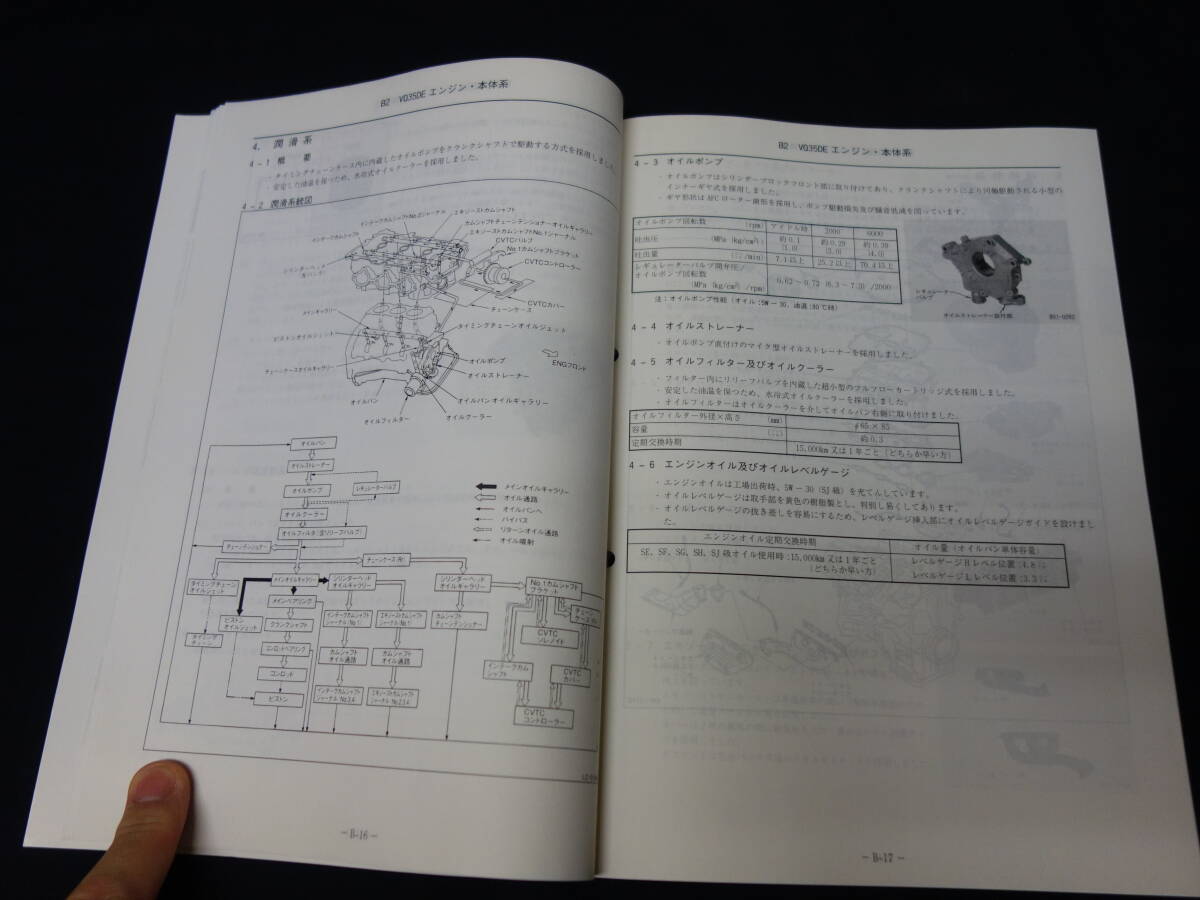 B2 VQ35DE エンジン・本体系
4. 潤滑系
4-1 概 要
・タイミングチェーンケース内に内蔵したオイルポンプをクランクシャフトで駆動する方式を採用しました。
・安定した油温を保つため、水冷式オイルクーラーを採用しました。
4-2 潤滑系統図
インテークカムシャフトNo.2ジャーナル
エキゾーストカムシャフト
カムシャフトチェーンテンショナーオイルギャラリー
エキゾーストカムシャフトNo.1ジャーナル
インテークカムシャフト
CVTCバルブ
No.1カムシャフトブラケット
シリンダーヘッド
CVTCコントローラー
CVTCカバー
チェーンケース
メインギャラリー
タイミングチェーンオイルジェット
ピストンオイルジェット
オイルポンプ
ENGフロント
チェーンケースオイルギャラリー
オイルストレーナー
オイルパン
オイルパンオイルギャラリー
オイルクーラー
オイルフィルター
オイルパン
オイルストレーナー
オイルポンプ
レギュレーターバルブ
オイルクーラー
オイルフィルタ(含リリーフバルブ)
メインオイルギャラリー
オイル通路
オイルパンへ
バイパス
リターンオイル通路
オイル噴射
チェーンテンショナー
チェーンケース
タイミングチェーン
オイルジェット
メインオイルギャラリー
シリンダーヘッド
オイルギャラリー
シリンダーヘッド
オイルギャラリー
No.1カムシャフト
ブラケット
メインベアリング
ピストン
オイルジェット
インテークカムシャフト
ジャーナル(No.1)
エキゾーストカムシャフト
ジャーナル(No.1)
カムシャフト
チェーンテンショナー
チェーン
クランクシャフト
CVTC
ソレノイド
タイミング
チェーン
コンロッドベアリング
カムシャフト
オイル通路
カムシャフト
オイル通路
インテークカム
シャフト
CVTC
カバー
コンロッド
ピストン
インテークカムシャフト
エキゾーストカムシャフト
CVTC
コントローラー
-B-16-
B2 VQ35DE エンジン・本体系
4-3 オイルポンプ
・オイルポンプはシリンダーブロックフロント部に取り付けてあり、クランクシャフトにより同軸駆動される小型の
インナーギヤ式を採用しました。
・ギヤ形状はAFCローター歯形を採用し、ポンプ駆動損失及び騒音低減を図っています。
オイルポンプ回転数 (rpm) アイドル時 2000 6000
吐出圧 (MPa {kg/cm²}) 約0.1 {1.0} 約0.29 {3.0} 約0.39 {4.0}
吐出量 7.1以上 25.2以上 70.4以上
レギュレーターバルブ開弁圧/
オイルポンプ回転数
(MPa {kg/cm²} /rpm) 0.62~0.72 {6.3~7.3} /2000
注:オイルポンプ性能(オイル:5W-30、油温:80℃時)
レギュレーター
バルブ
オイルストレーナー取付部
4-4 オイルストレーナー
・オイルポンプ直付けのマイク型オイルストレーナーを採用しました。
4-5 オイルフィルター及びオイルクーラー
・フィルター内にリリーフバルブを内蔵した超小型のフルフローカートリッジ式を採用しました。
・安定した油温を保つため、水冷式オイルクーラーを採用しました。
・オイルフィルターはオイルクーラーを介してオイルパン右側に取り付けました。
オイルフィルター外径×高さ (mm) φ65×85
容量 約0.3
定期交換時期 15,000km又は1年ごと(どちらか早い方)
4-6 エンジンオイル及びオイルレベルゲージ
・エンジンオイルは工場出荷時、5W-30(SJ級)を充てんしています。
・オイルレベルゲージは取手部を黄色の樹脂製とし、判別し易くしてあります。
・オイルレベルゲージの抜き差しを容易にするため、レベルゲージ挿入部にオイルレベルゲージガイドを設けまし
た。
エンジンオイル定期交換時期 オイル量(オイルパン単体容量)
SE、SF、SG、SH、SJ級オイル使用時:15,000km又は1年ごと レベルゲージHレベル位置:4.8
(どちらか早い方) レベルゲージLレベル位置:3.3
-B-17-